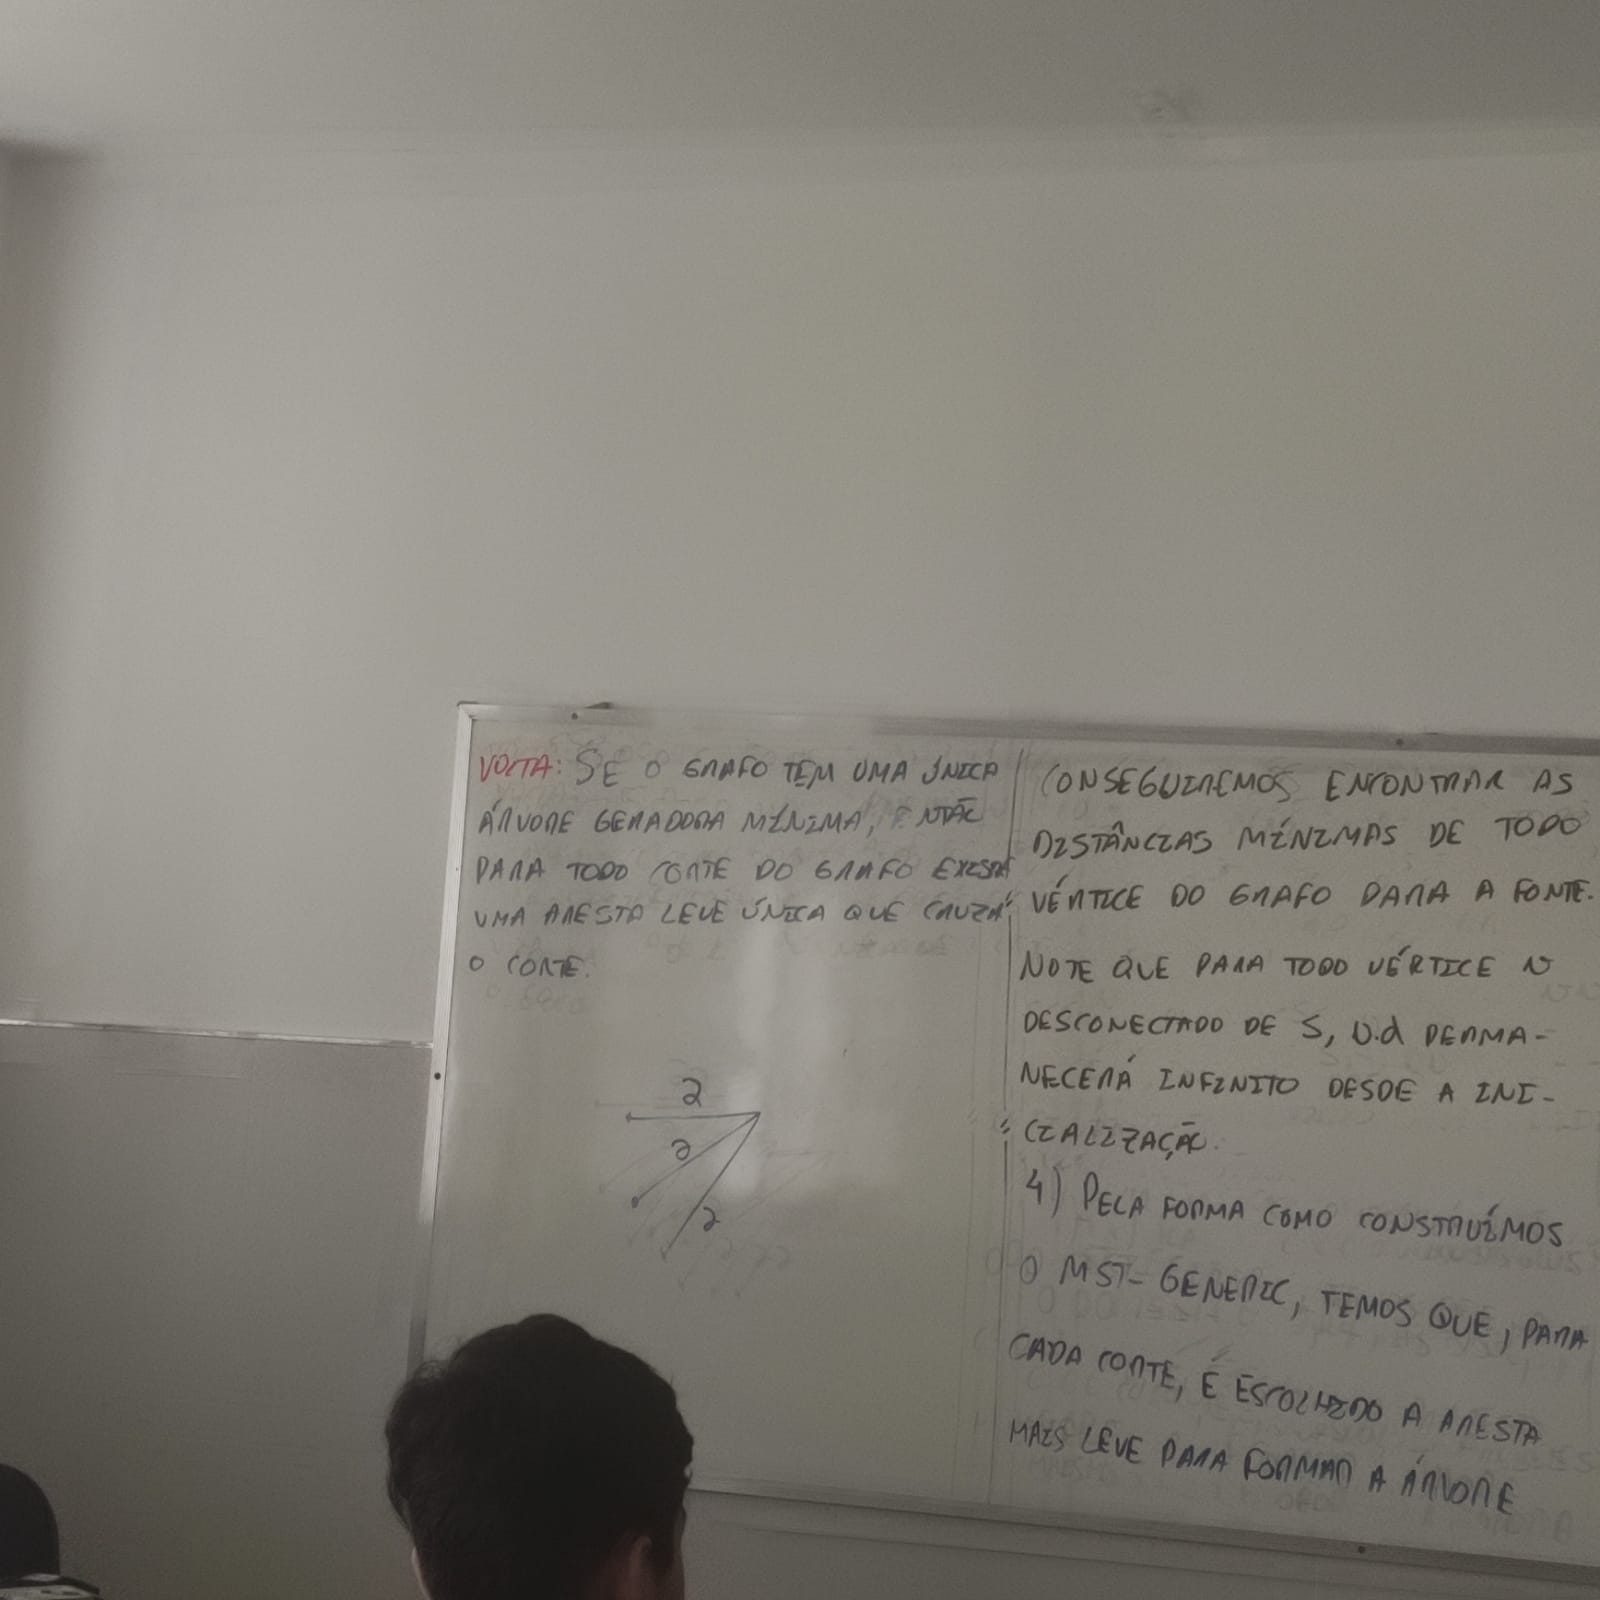 VOLTA: SE O GRAFO TEM UMA ÚNICA
ÁRVORE GERADORA MÍNIMA, ENTÃO
PARA TODO CORTE DO GRAFO EXISTE
UMA ARESTA LEVE ÚNICA QUE CRUZA
O CORTE.
2
2
2
CONSEGUIREMOS ENCONTRAR AS
DISTÂNCIAS MÍNIMAS DE TODO
VÉRTICE DO GRAFO PARA A FONTE.
NOTE QUE PARA TODO VÉRTICE v
DESCONECTADO DE S, v.d PERMA-
NECERÁ INFINITO DESDE A INI-
CIALIZAÇÃO.
4) PELA FORMA COMO CONSTRUÍMOS
O MST-GENERIC, TEMOS QUE, PARA
CADA CORTE, É ESCOLHIDO A ARESTA
MAIS LEVE PARA FORMAR A ÁRVORE